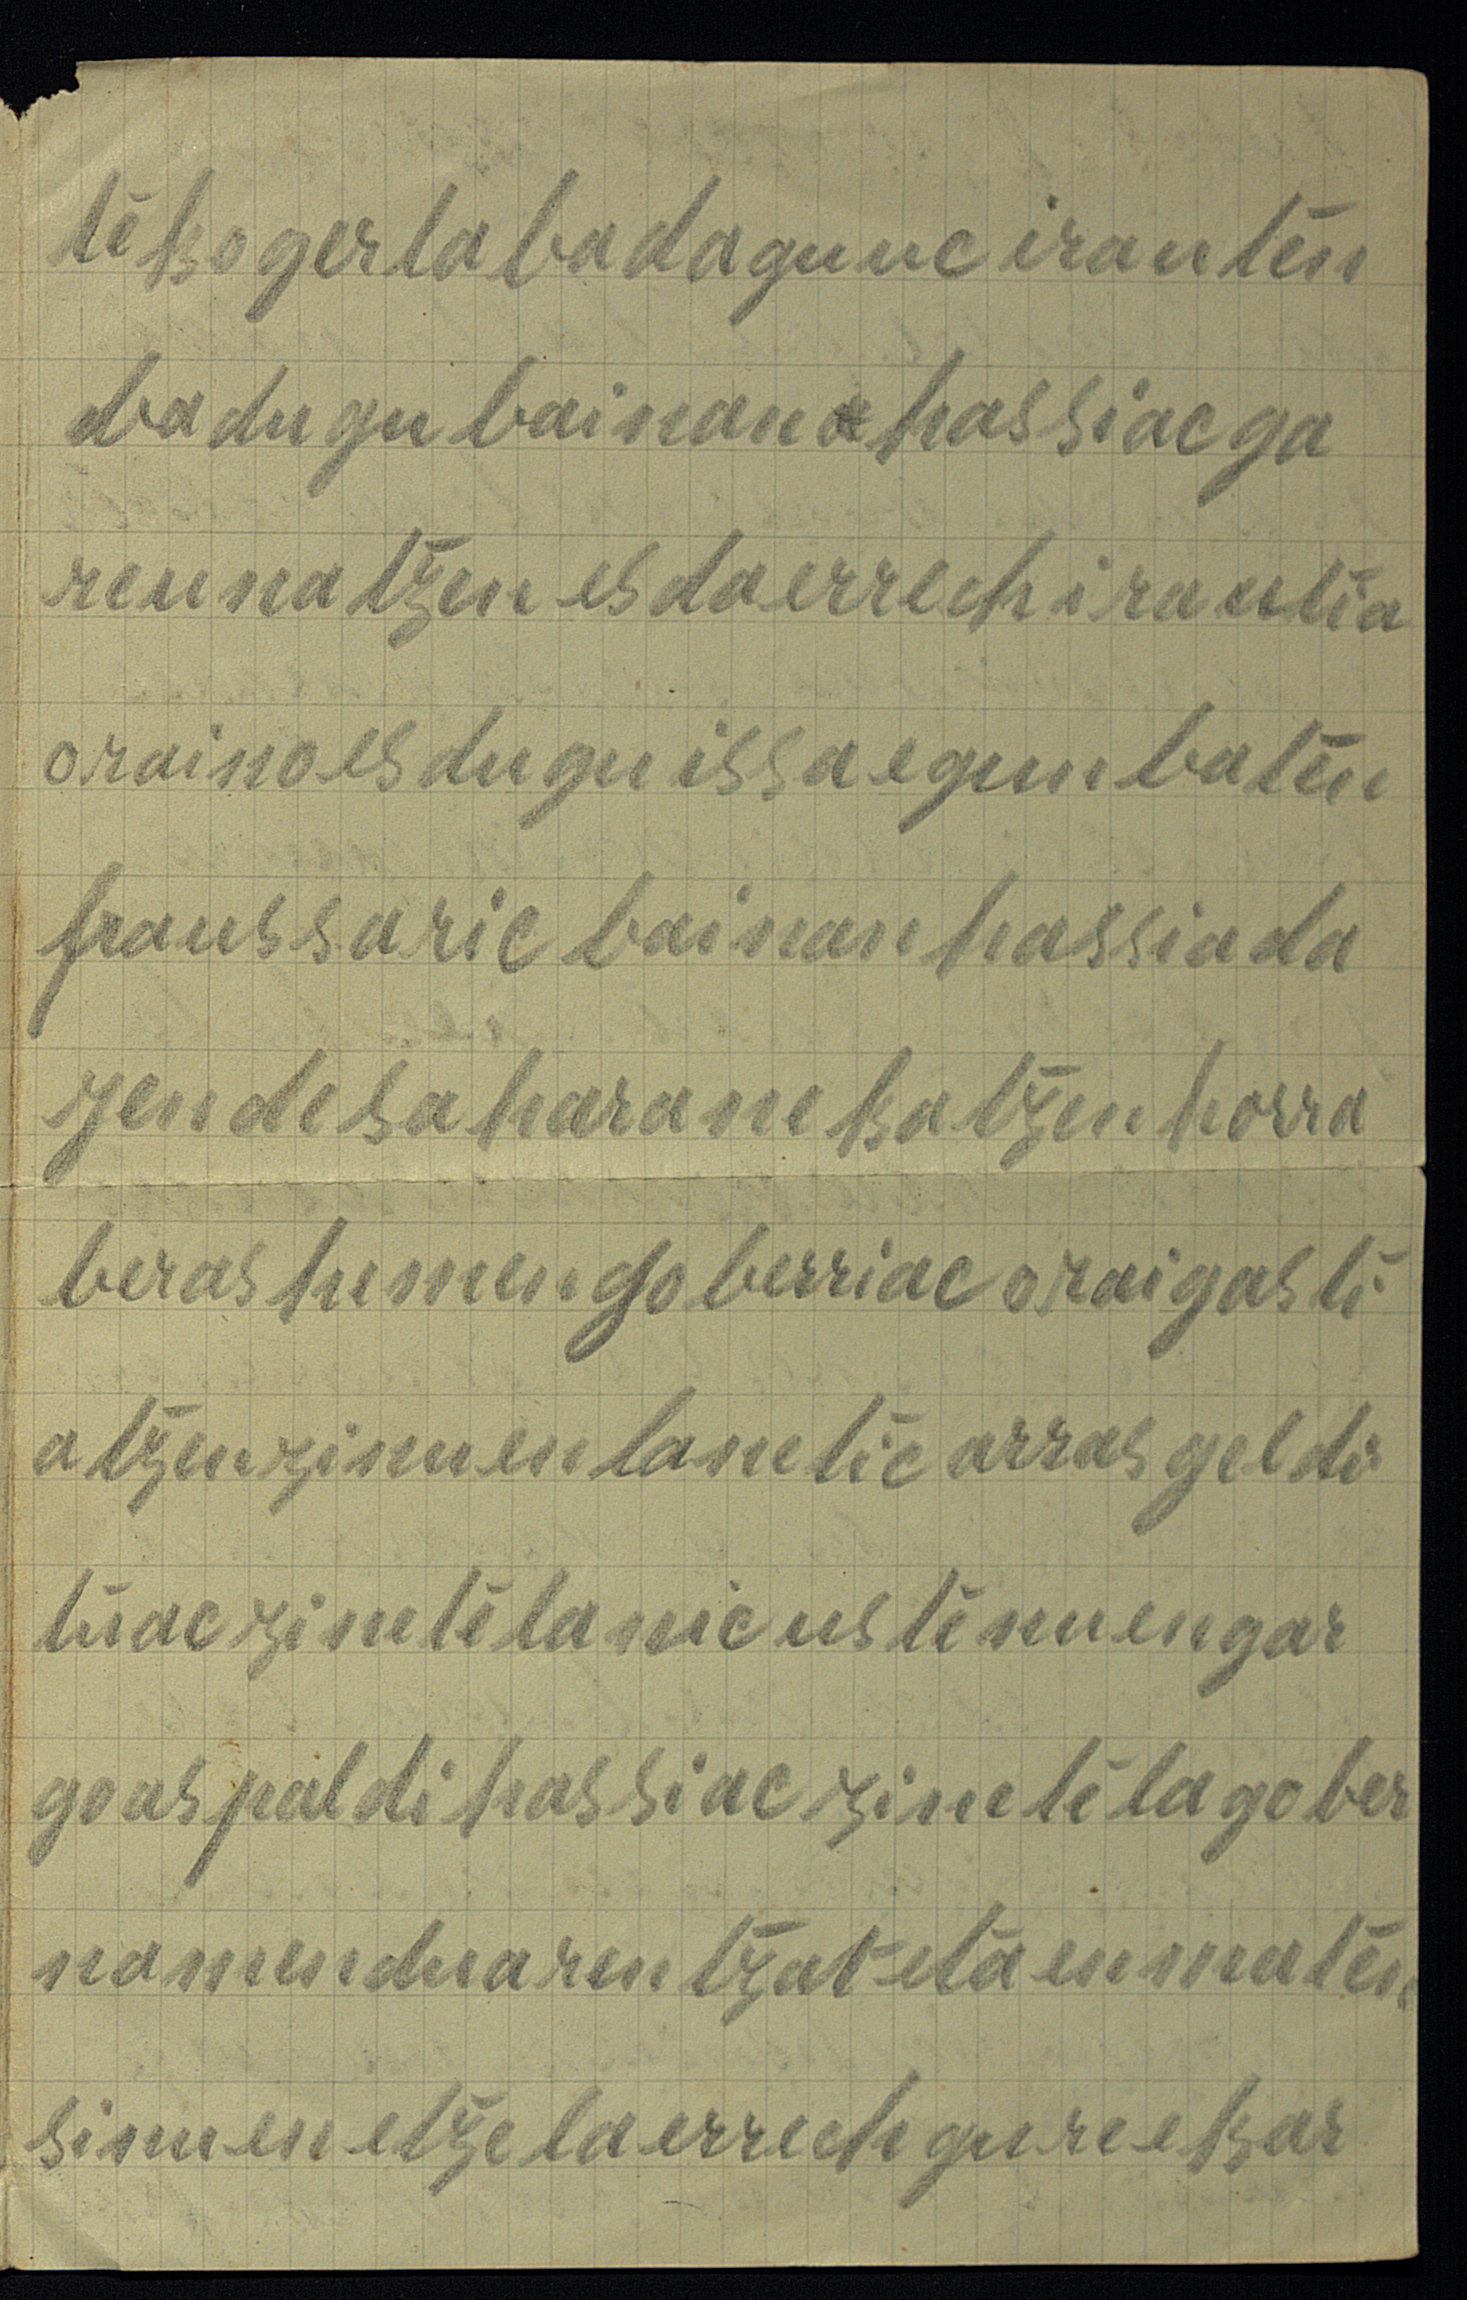 teko gerla badagu uc irauten
badugu bainan hassiac ga
reu natzen es da errech irautia
oraino es dugu issa egun baten
fraussaric bainan hassia da
gendesa haranekatzen horra
beras hemengo berriac orai gasti
atzen zinuen lanetic arras geldi
tuac zinetela nic uste nuen gar
goas paldi hassiac zinetela gober
namenduarentzat eta emaiten
sinuen etzela errech gure ekar